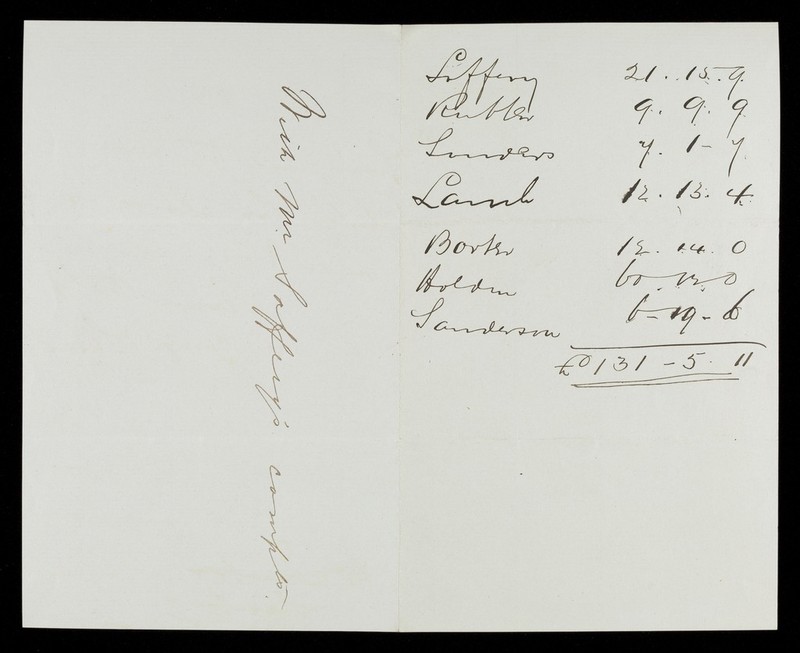 With Mr. Saffery's compts.
Saffery 21..15.9
Rutter 9. 9. 9
Sanders 7. 1-7
Lamb 12. 13. 4
Borter 12. 14. 0
Holden 60. 12. 0
Sanderson 6-19-6
£131-5.11